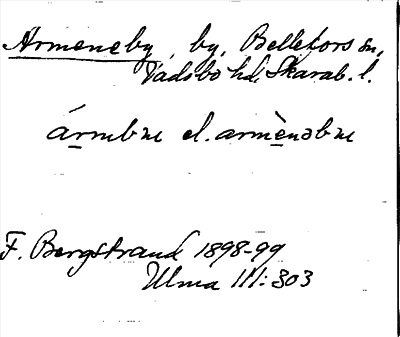 Armeneby, by, Bellefors sn,
Vadsbo hd, Skarab. l.
árnbne el. armènəbne
F. Bergstrand 1898-99
Ulma III: 303